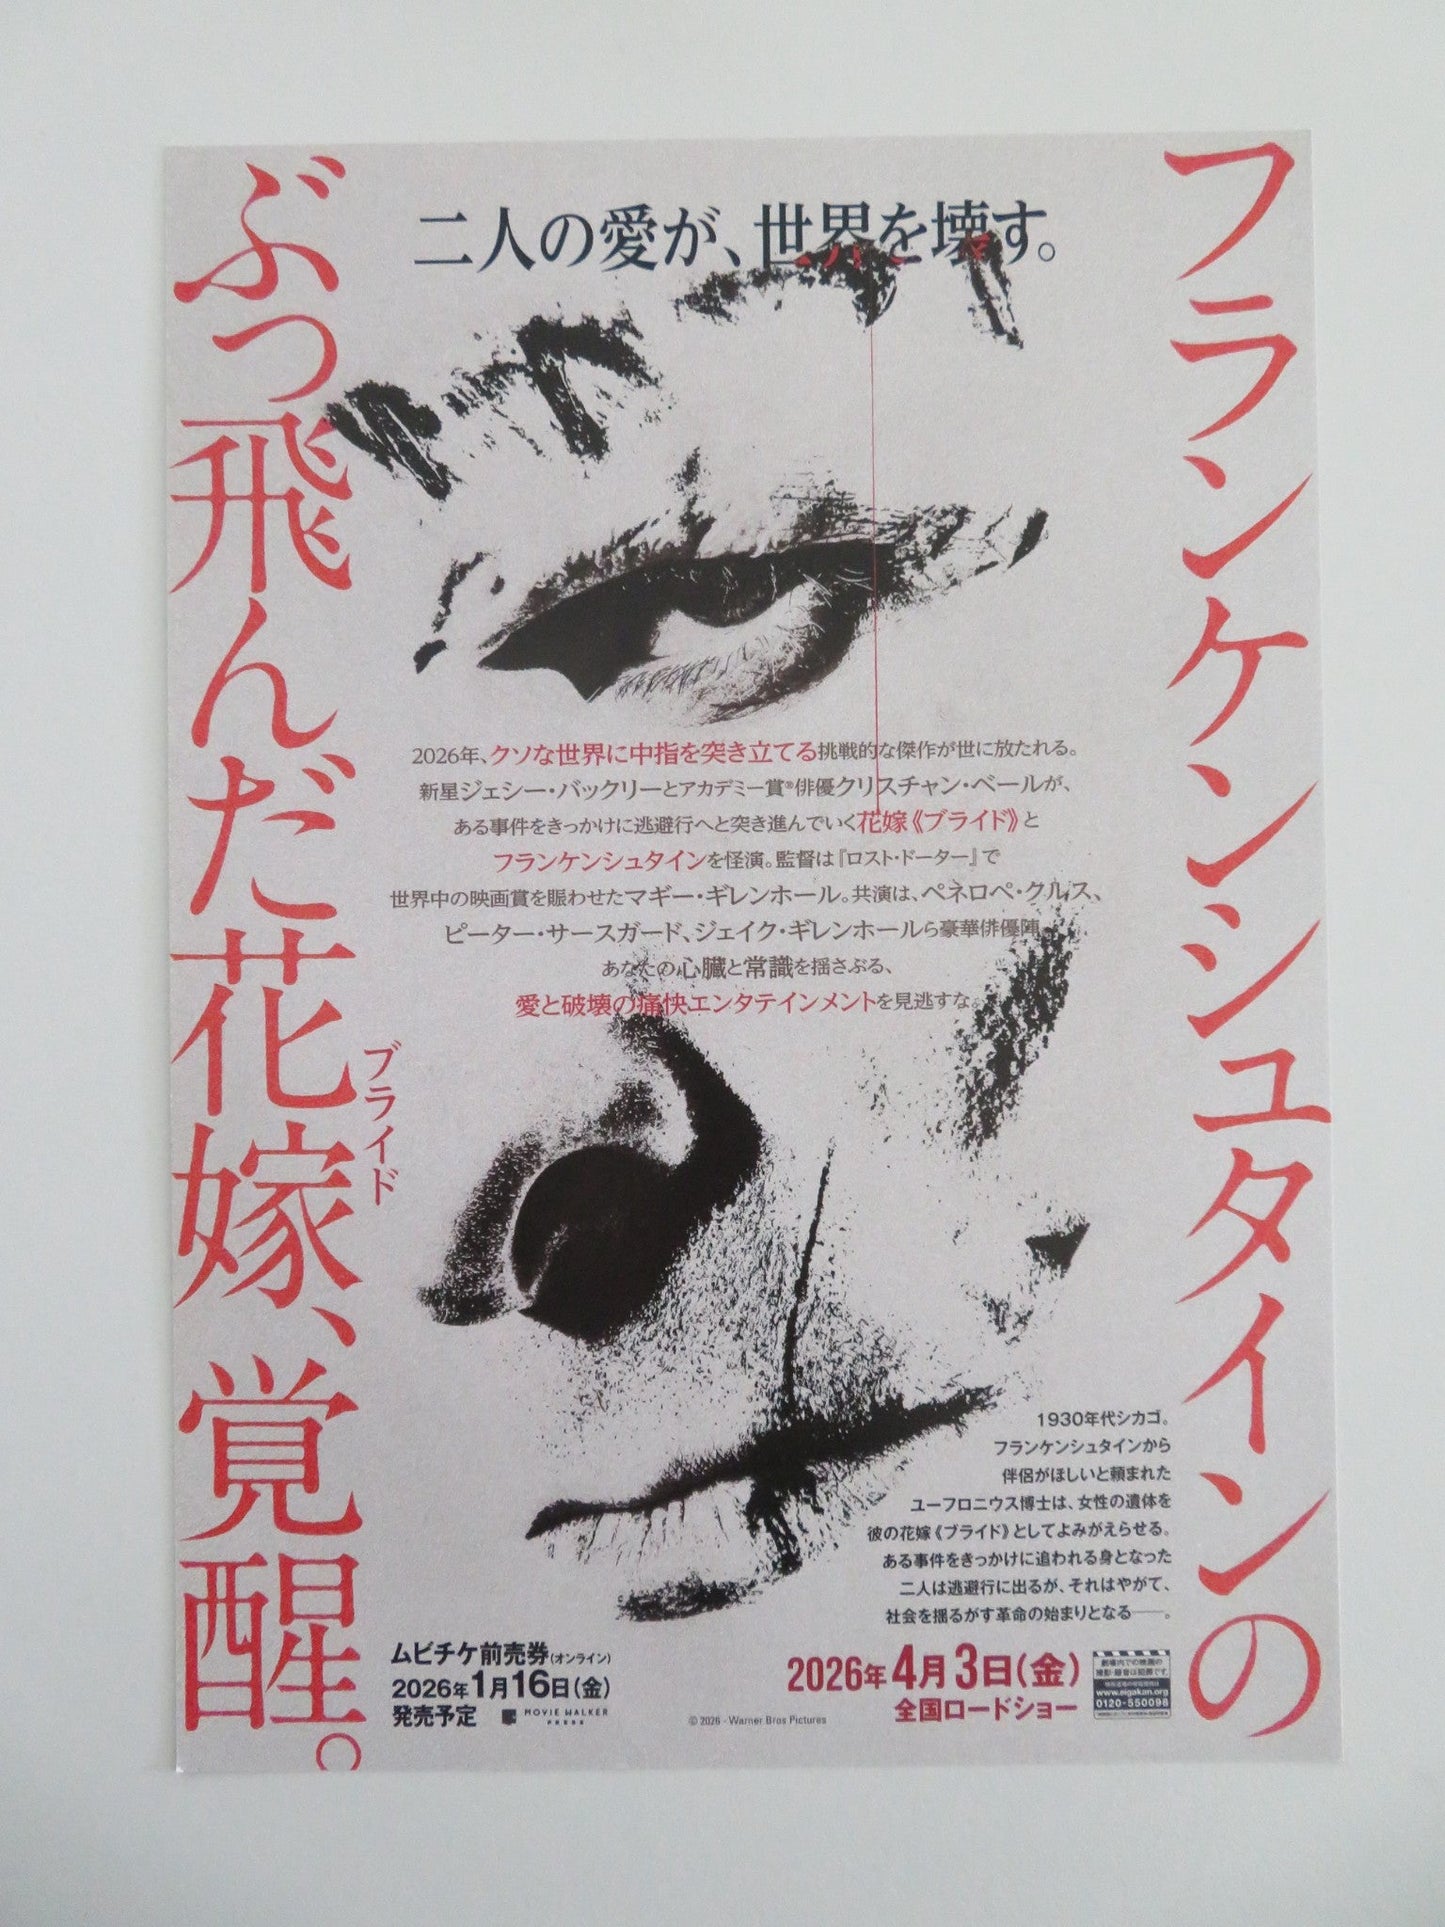 フランケンシュタインの
ぶっ飛んだ花嫁、覚醒。
ブライド
二人の愛が、世界を壊す。
2026年、クソな世界に中指を突き立てる挑戦的な傑作が世に放たれる。
新星ジェシー・バックリーとアカデミー賞®俳優クリスチャン・ベールが、
ある事件をきっかけに逃避行へと突き進んでいく花嫁《ブライド》と
フランケンシュタインを怪演。監督は『ロスト・ドーター』で
世界中の映画賞を賑わせたマギー・ギレンホール。共演は、ペネロペ・クルス、
ピーター・サースガード、ジェイク・ギレンホールら豪華俳優陣。
あなたの心臓と常識を揺さぶる、
愛と破壊の痛快エンタテインメントを見逃すな。
1930年代シカゴ。
フランケンシュタインから
伴侶がほしいと頼まれた
ユーフロニウス博士は、女性の遺体を
彼の花嫁《ブライド》としてよみがえらせる。
ある事件をきっかけに追われる身となった
二人は逃避行に出るが、それはやがて、
社会を揺るがす革命の始まりとなる──。
ムビチケ前売券(オンライン)
2026年1月16日(金)
発売予定 MOVIE WALKER PRESS
© 2026 - Warner Bros Pictures
2026年4月3日(金)
全国ロードショー
劇場内での映画の
撮影・録音は犯罪です。
www.eigakan.org
0120-550098